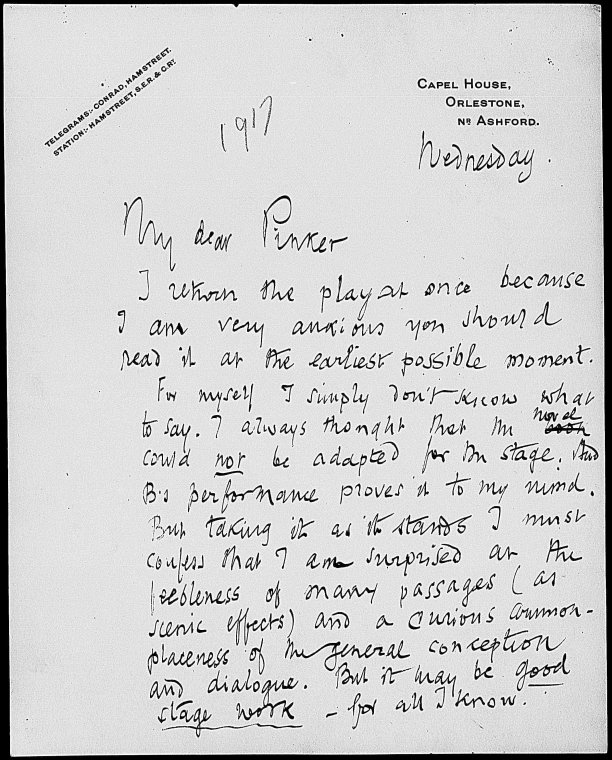 TELEGRAMS:- CONRAD, HAMSTREET.
STATION:- HAMSTREET, S.E.R. & C.RY.
CAPEL HOUSE,
ORLESTONE,
NR ASHFORD.
1917
Wednesday.
My dear Pinker
I return the play at once because
I am very anxious you should
read it at the earliest possible moment.
For myself I simply don't know what
to say. I always thought that the novel
could not be adapted for the stage. And
B's performance proves it to my mind.
But taking it as it stands I must
confess that I am surprised at the
feebleness of many passages (as
scenic effects) and a curious common-
placeness of the general conception
and dialogue. But it may be good
stage work – for all I know.